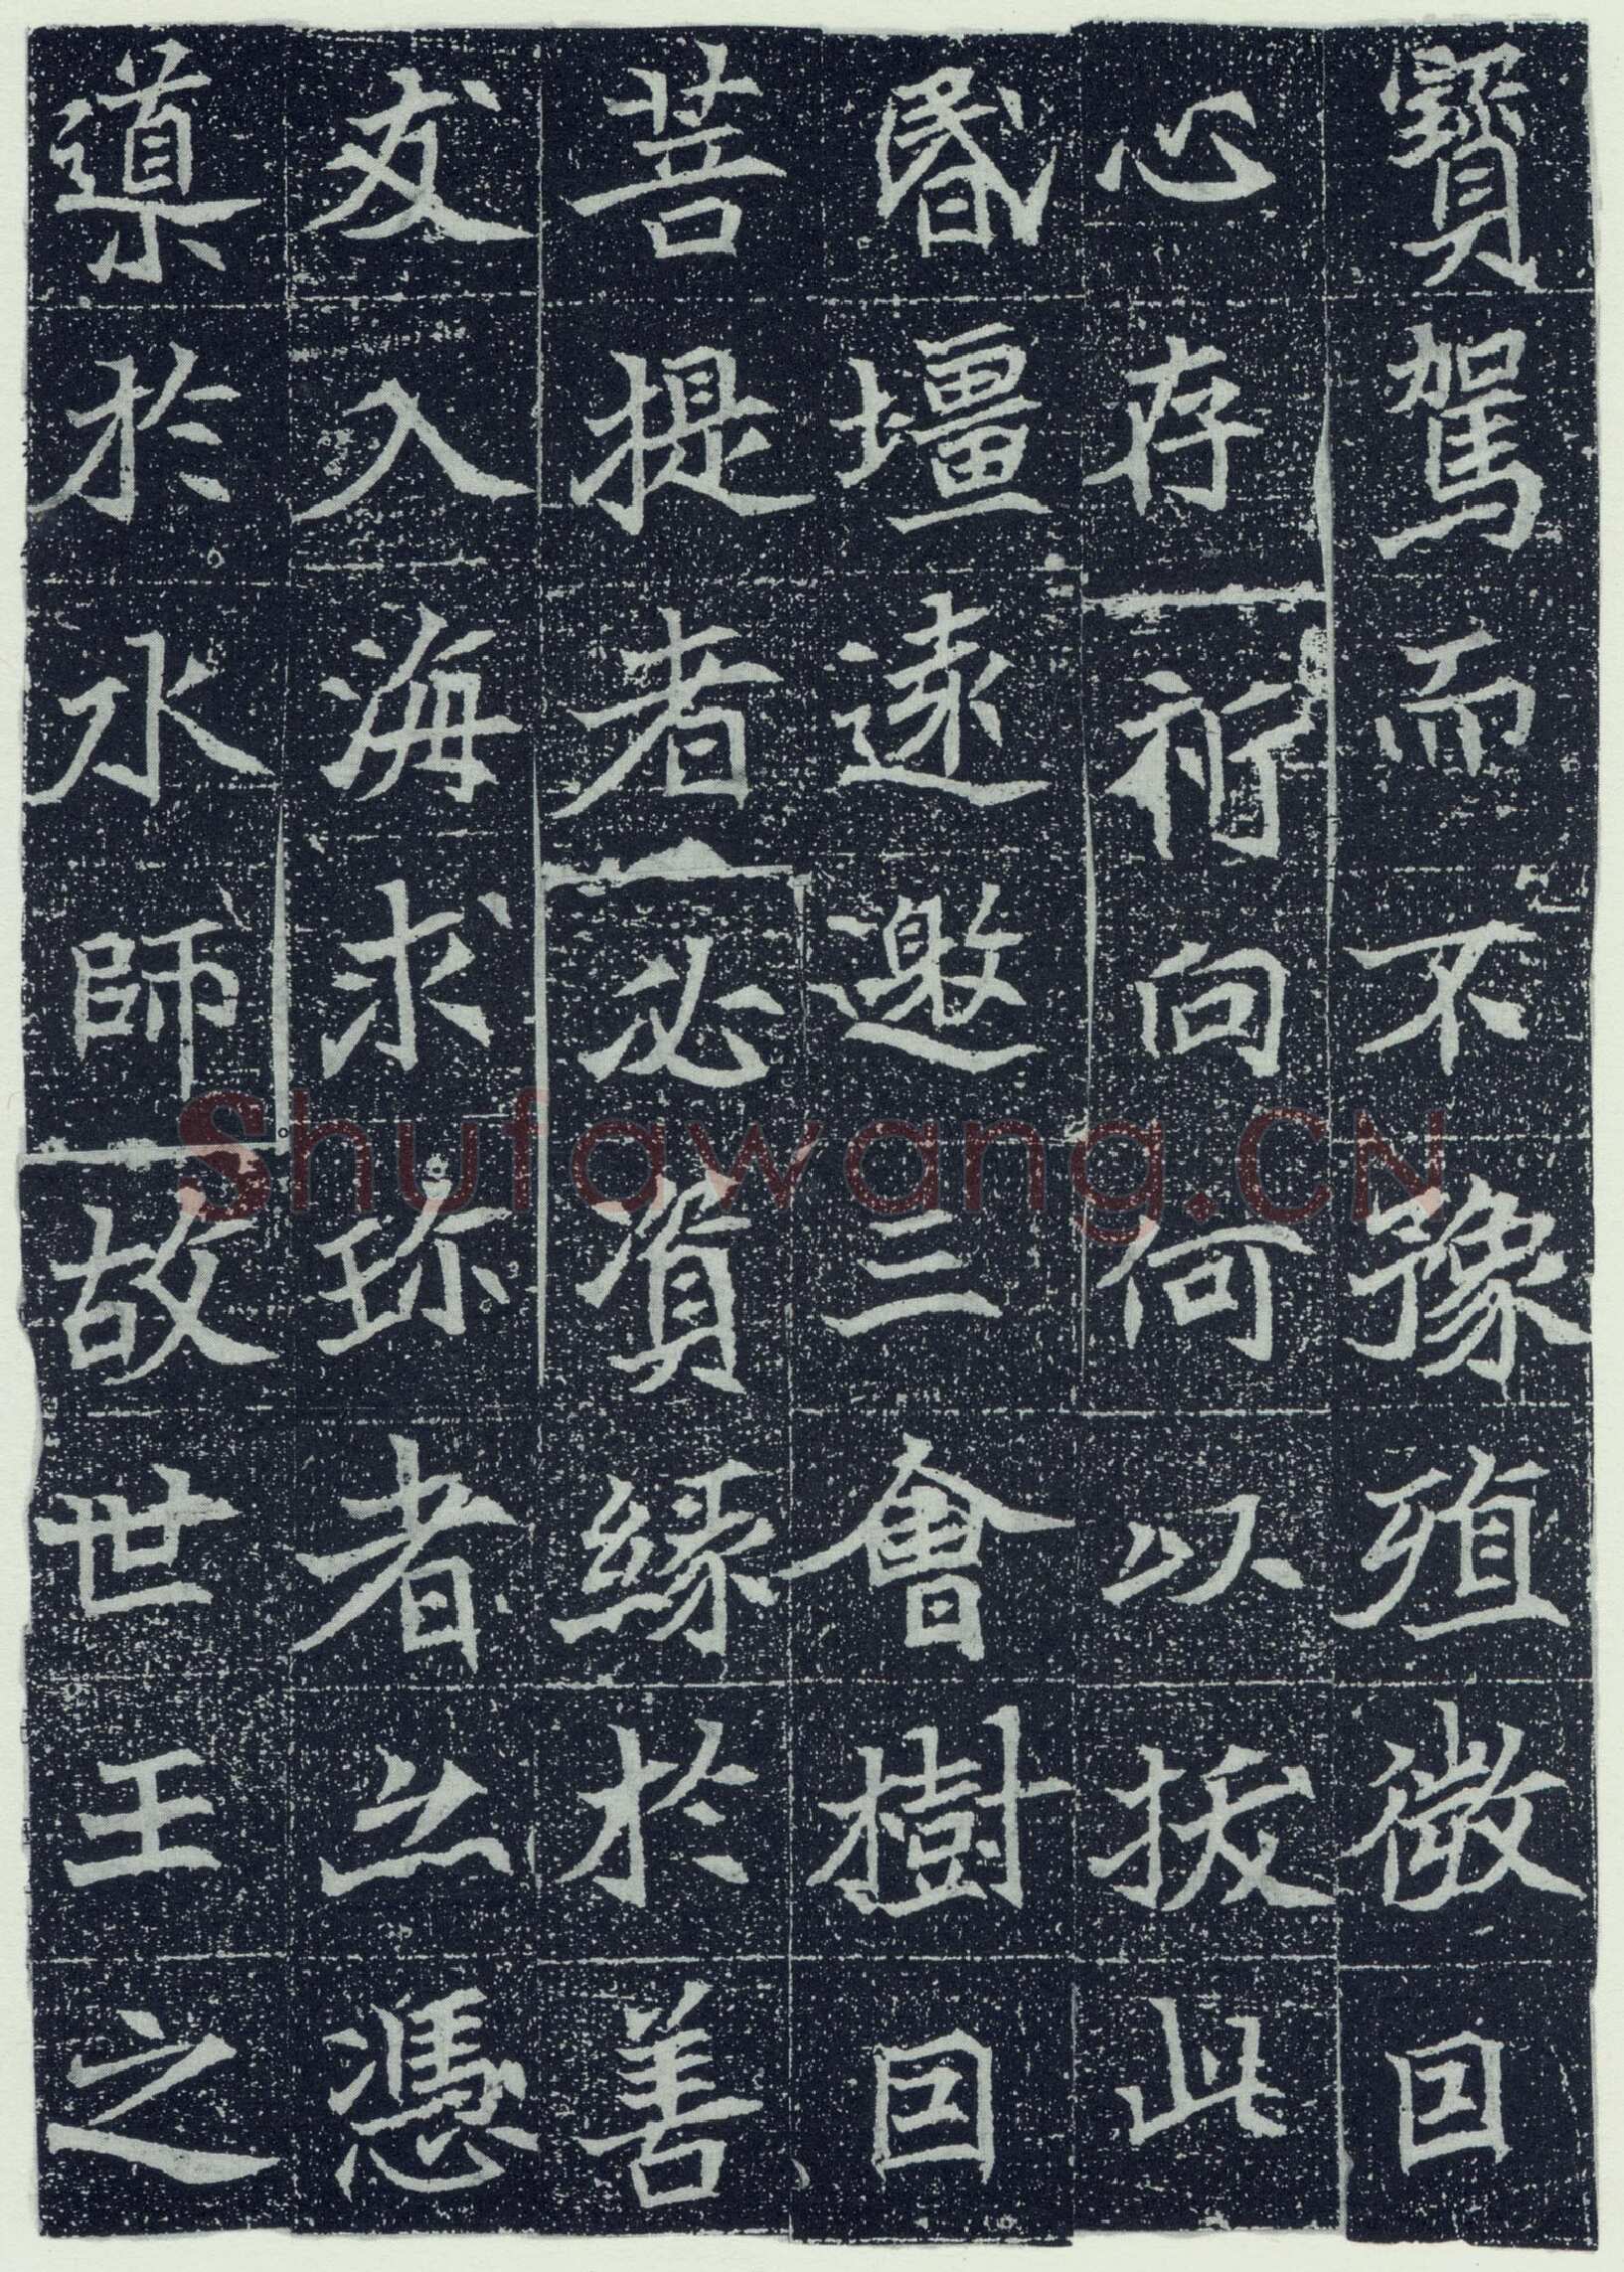 寶駕而不豫殖微囙
心存祈向何以拔此
昬壃遠邀三會樹囙
菩提者必資緣於善
友入海求珎者亦憑
導於水師故世王之
Shufawang.CN